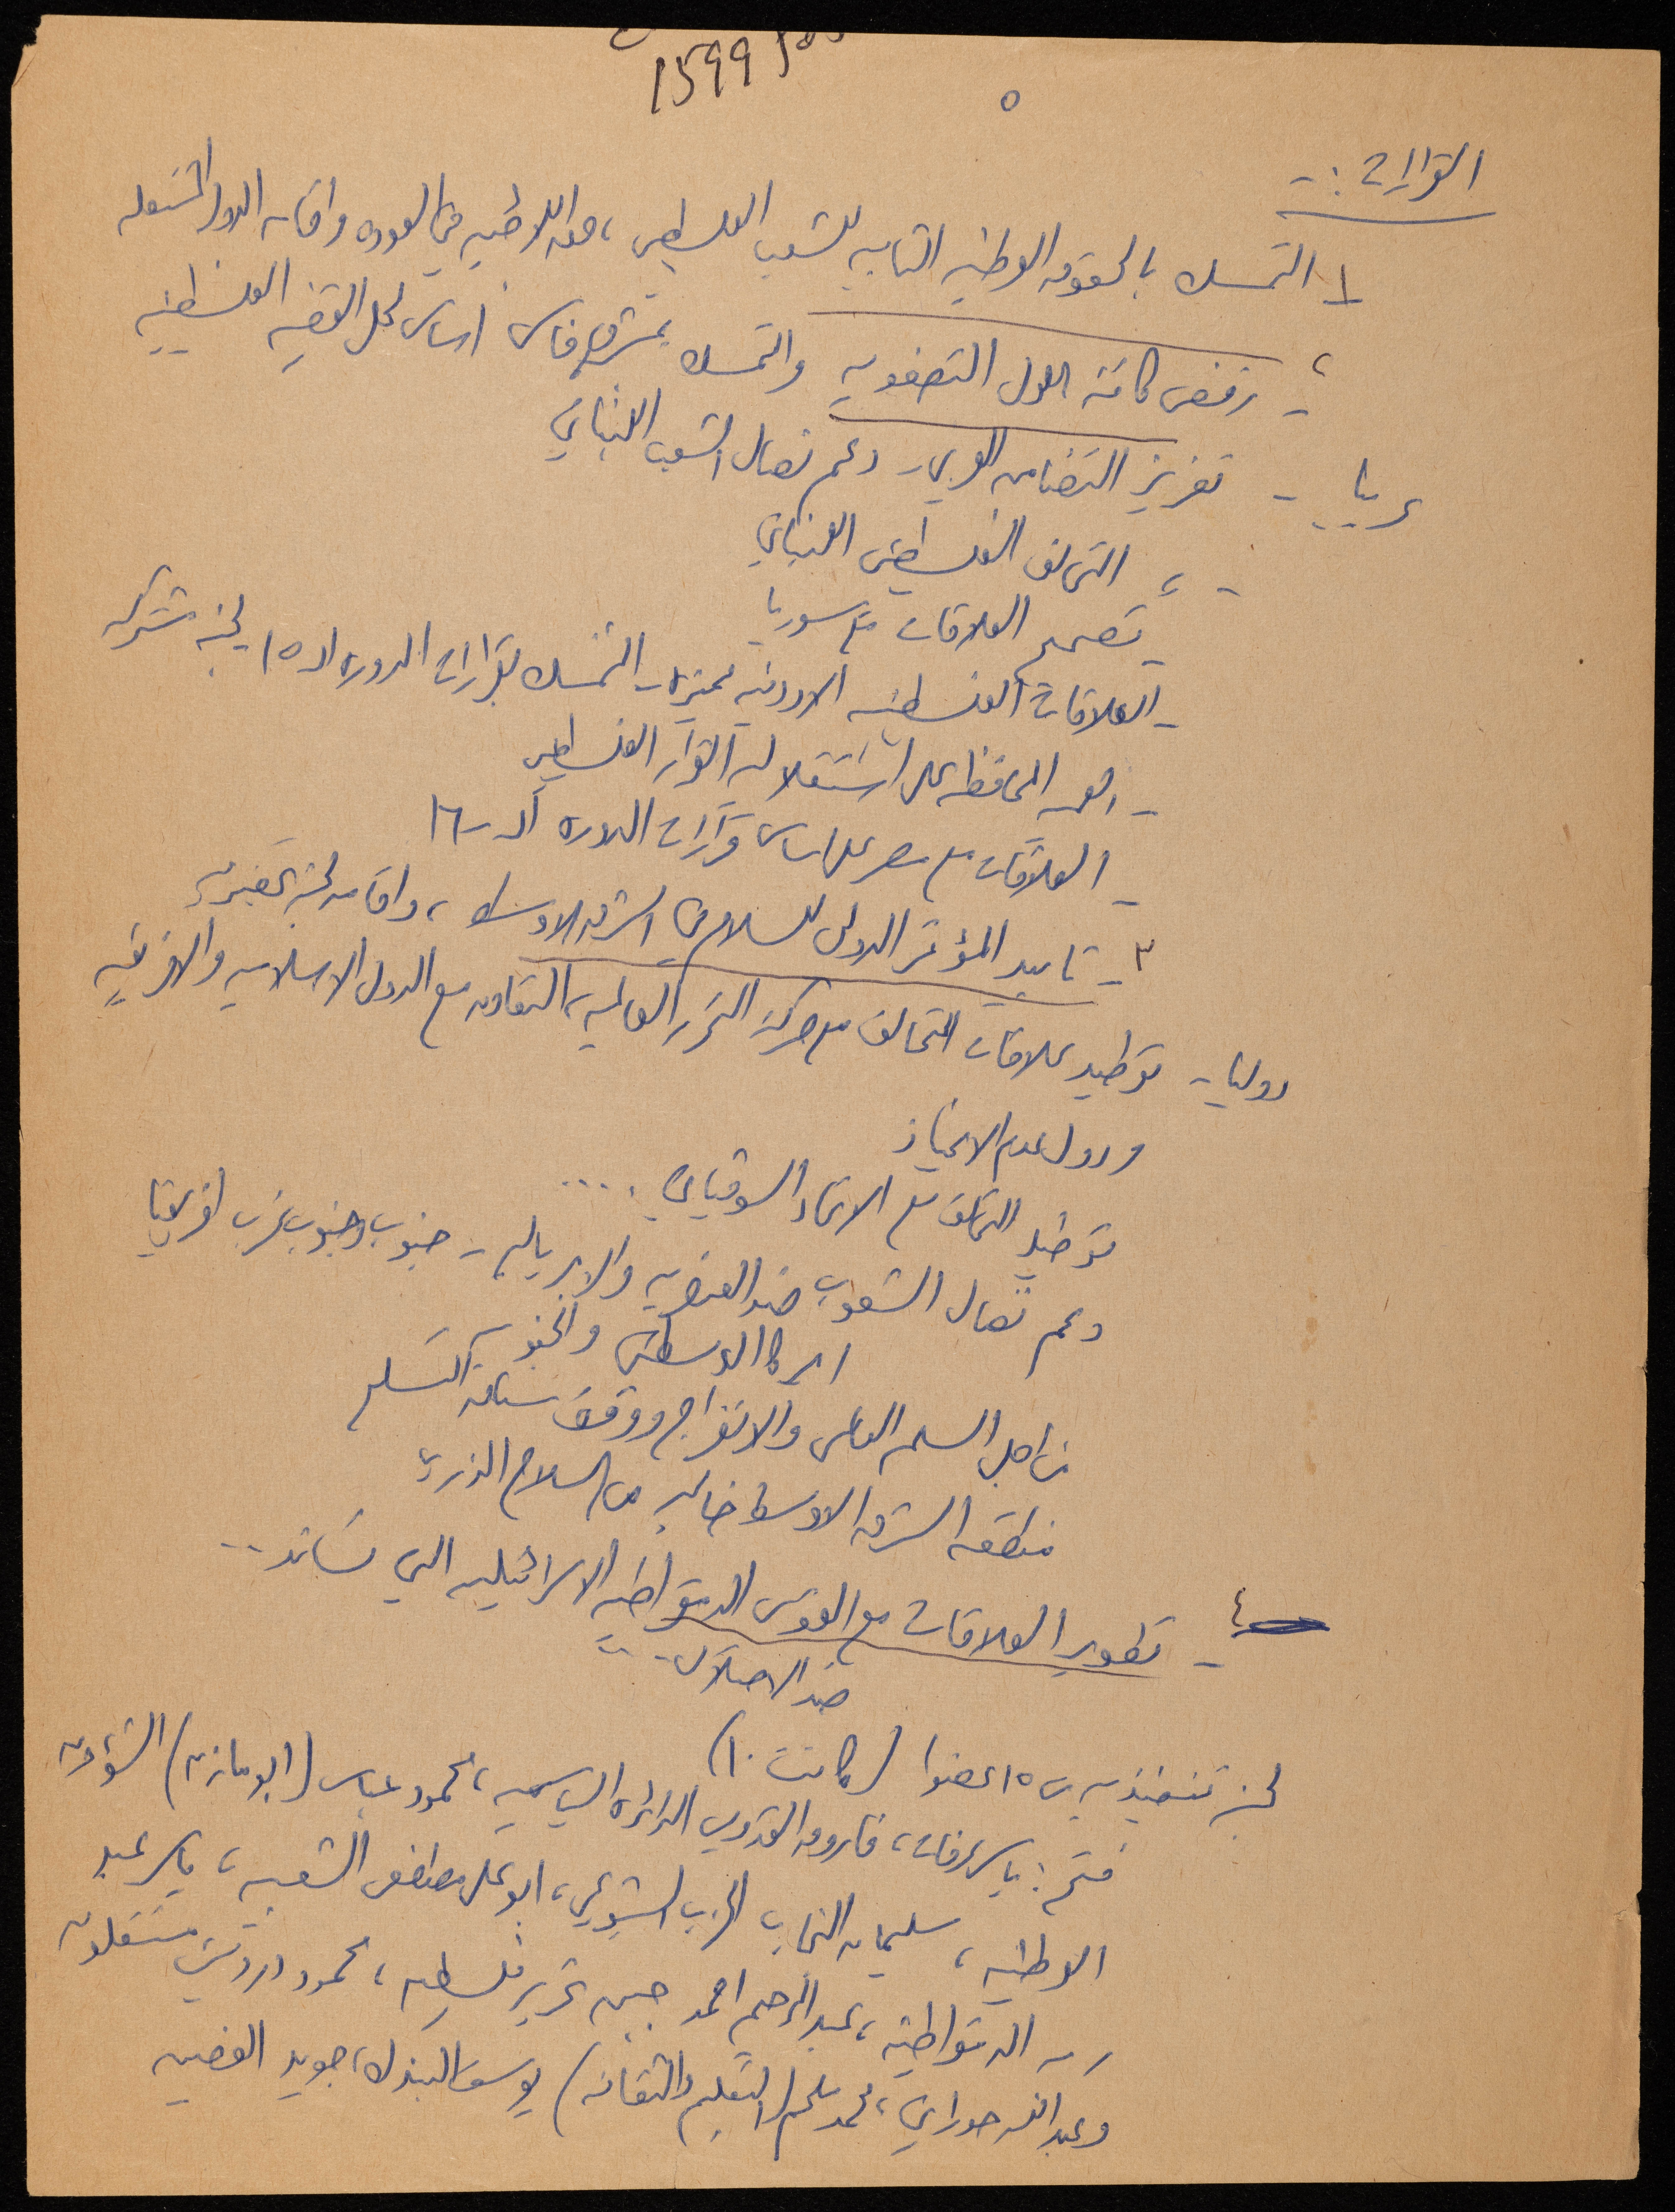 1599
٥
القرارات :-
١ التمسك بالحقوق الوطنية الثابته للشعب الفلسطيني ، حق اللاجئين في العوده واقامه الدوله المستقله
، - رفض كافة الحلول التصفويه والتمسك بمشروع فاس اساس لحل القضيه الفلسطينيه
عربيا - تعزيز التضامن العربي - دعم نضال الشعب اللبناني
- ، التحالف الفلسطيني اللبناني
- تصحيح العلاقات مع سوريا
- العلاقات الفلسطينيه الاردنيه مميزه - التمسك بقرارات الدوره الـ ١٥ لجنه مشتركه
- المحافظه على استقلاليه القرار الفلسطيني
- العلاقات مع مصر على اساس قرارات الدوره الـ ١٦
٣ - تاييد المؤتمر الدولي للسلام في الشرق الاوسط ، واقامه لجنه تحضيريه
دوليا - توطيد علاقات التحالف مع حركة التحرر العالميه ، التعاون مع الدول الاسلاميه والافريقيه
ودول عدم الانحياز
توطيد التحالف مع الاتحاد السوفياتي ....
دعم نضال الشعوب ضد العنصريه والامبرياليه - جنوب وجنوب غرب افريقيا
اميركا الوسطى والجنوبيه
من اجل السلم العالمي والانفراج ووقف سباق التسلح
منطقه الشرق الاوسط خاليه من السلاح الذري
٤ - تطوير العلاقات مع القوى الديمقراطيه الاسرائيليه التي تساند ..
ضد الاحتلال ..
لجنه تنفيذيه من ١٥ عضوا (كانت ١٠)
فتح : ياسر عرفات ، فاروق القدومي الدائره السياسيه ، محمود عباس (ابو مازن) الشؤون
الوطنيه ، سليمان النجاب الحزب الشيوعي ، ابو علي مصطفى الشعبيه ، ياسر عبد
ربه الديمقراطيه ، عبد الرحيم احمد جبهه تحرير فلسطين ، محمود درويش مستقلون
وعبد الله حوراني ، محمد ملحم (التعليم والثقافه) يوسف البندك ، جويد الغصين